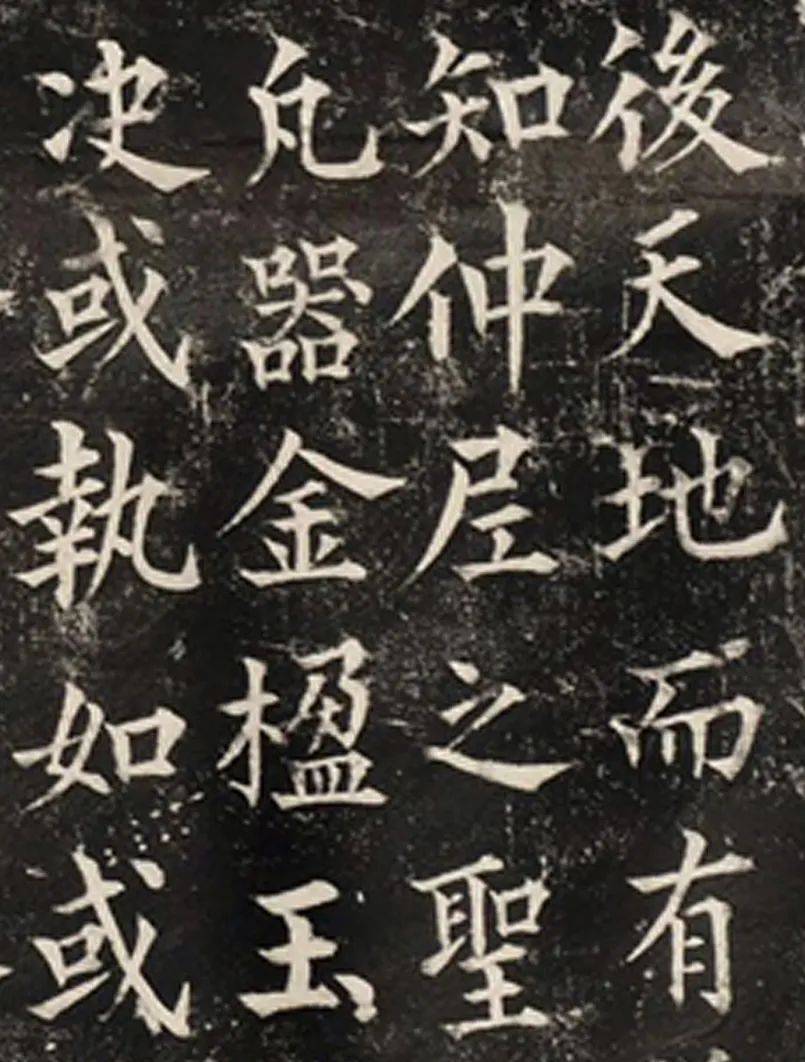 後天地而有
知仲尼之聖
凡器金楹玉
决或執如或